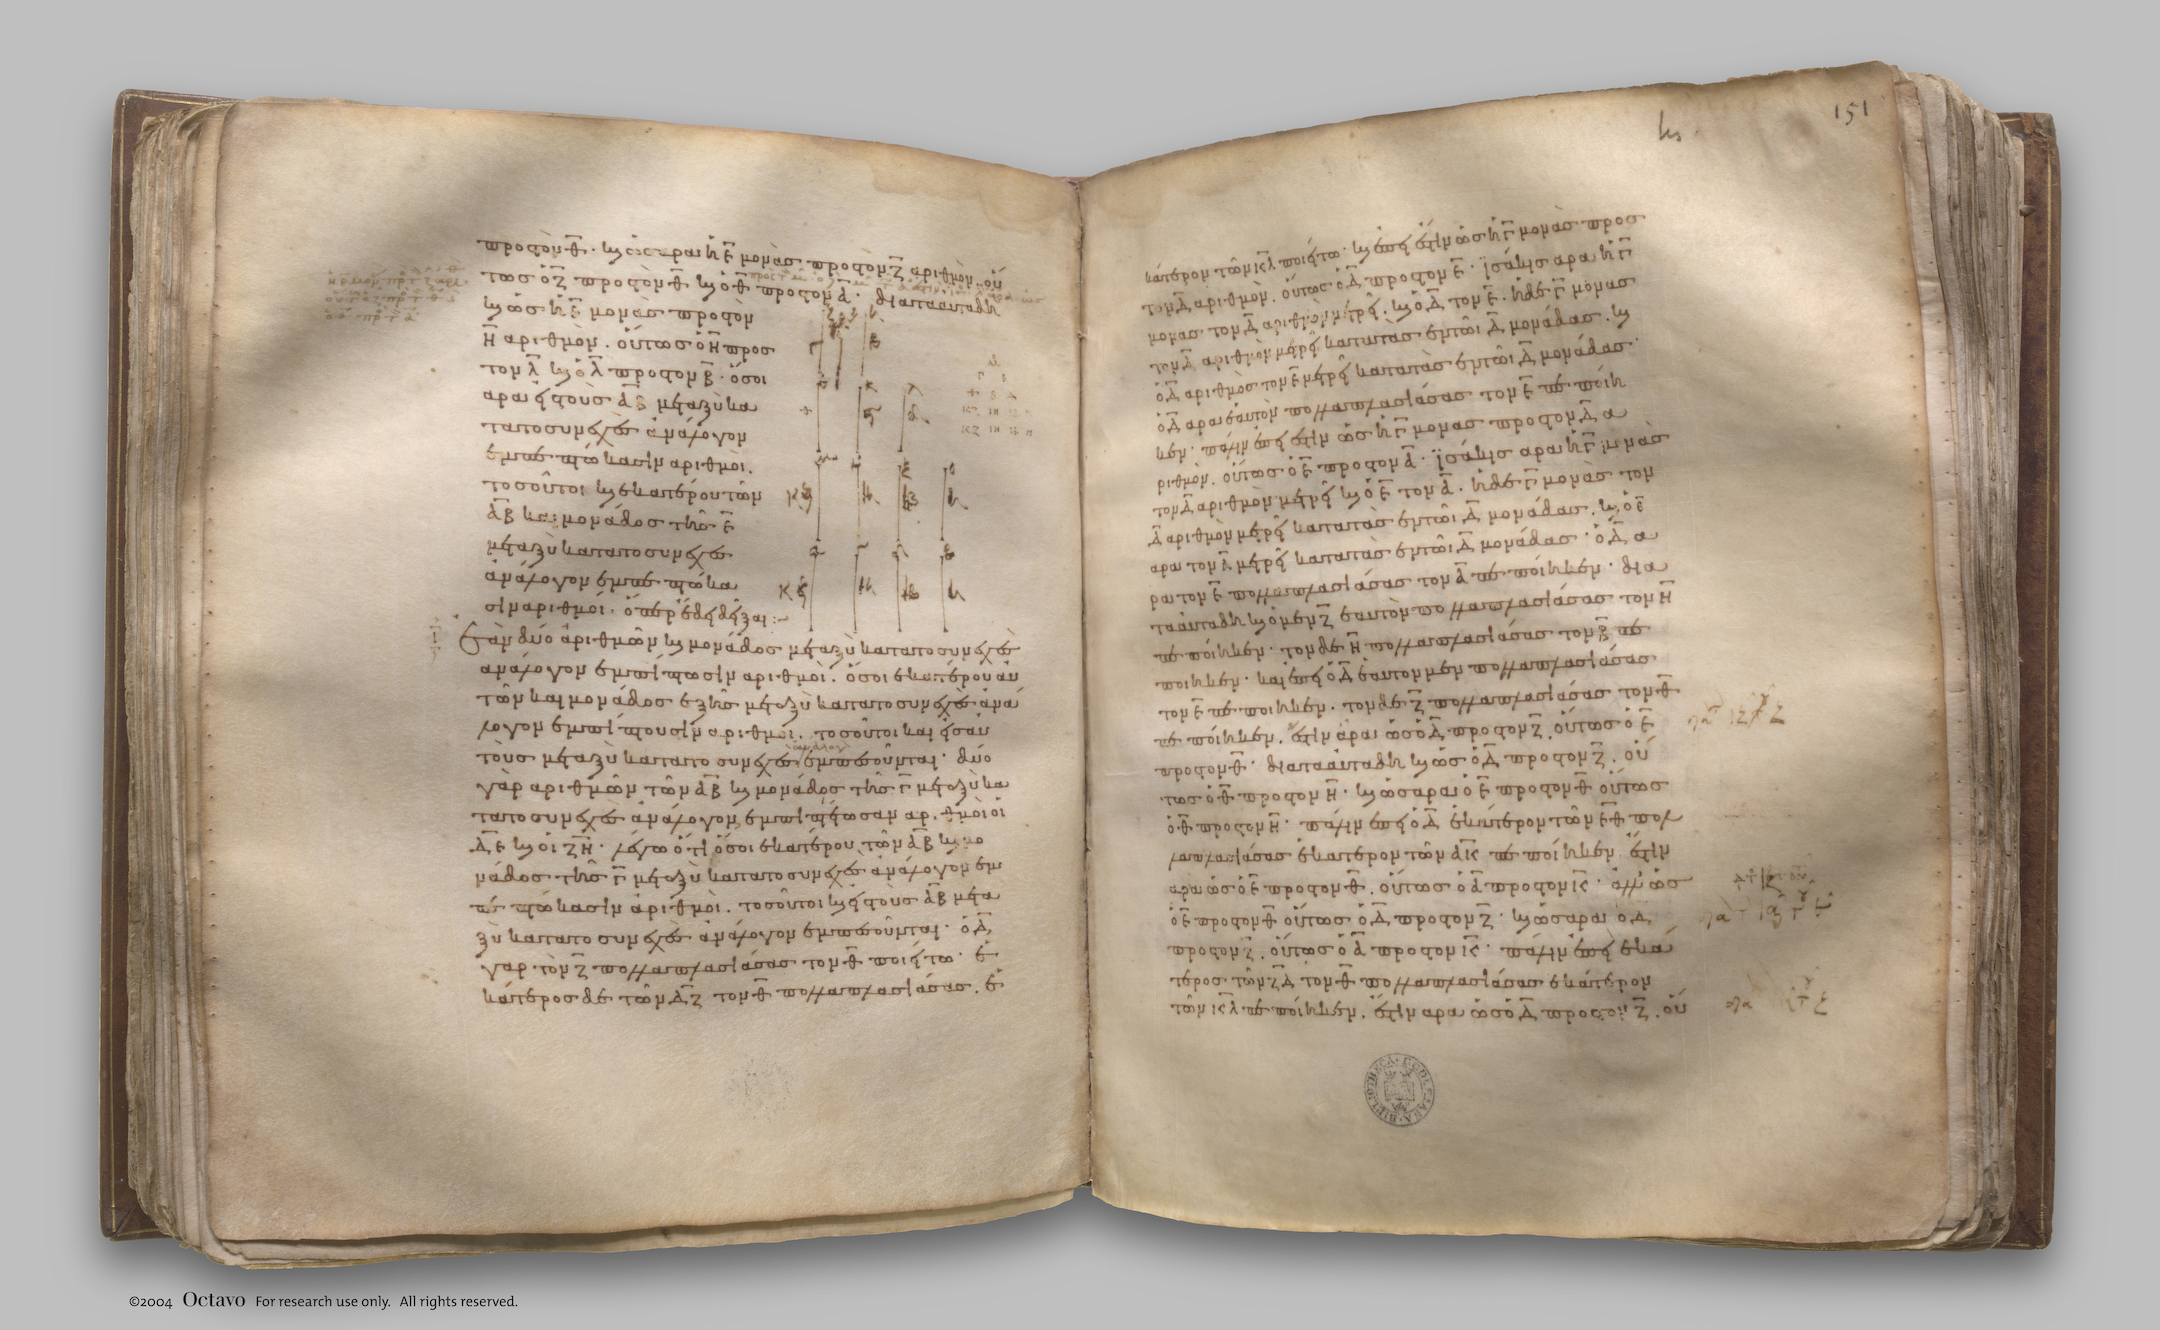 πρὸς τὸν Θ· καὶ ὡς ἄρα ἡ Ε μονὰς πρὸς τὸν Ζ ἀριθμὸν· οὕ
τως ὁ Ζ πρὸς τὸν Θ καὶ ὁ Θ πρὸς τὸν Α· διὰ τὰ αὐτὰ δὴ
καὶ ὡς ἡ Ε μονὰς πρὸς τὸν
Η ἀριθμὸν. οὕτως ὁ Η πρὸς
τὸν Λ καὶ ὁ Λ πρὸς τὸν Β· ὅσοι
ἄρα εἰς τοὺς Α Β μεταξὺ κα
τὰ τὸ συνεχὲς ἀνάλογον
ἐμπεπτώκασιν ἀριθμοὶ.
τοσοῦτοι καὶ ἑκατέρου τῶν
Α Β καὶ μονάδος τῆς Ε
μεταξὺ κατὰ τὸ συνεχὲς
ἀνάλογον ἐμπεπτώκα
σιν ἀριθμοί· ὅπερ ἔδει δεῖξαι :~
Ἐὰν δύο ἀριθμῶν καὶ μονάδος μεταξὺ κατὰ τὸ συνεχὲς
ἀνάλογον ἐμπίπτωσιν ἀριθμοὶ. ὅσοι ἑκατέρου αὐ
τῶν καὶ μονάδος ἑξῆς μεταξὺ κατὰ τὸ συνεχὲς ἀνά
λογον ἐμπίπτουσιν ἀριθμοὶ. τοσοῦτοι καὶ εἰς αὐ
τοὺς μεταξὺ κατὰ τὸ συνεχὲς ἐμπεσοῦνται· δύο
γὰρ ἀριθμῶν τῶν Α Β καὶ μονάδος τῆς Γ μεταξὺ κα
τὰ τὸ συνεχὲς ἀνάλογον ἐμπιπτέτωσαν ἀριθμοὶ οἱ
Δ Ε καὶ οἱ Ζ Η· λέγω ὅτι ὅσοι ἑκατέρου τῶν Α Β καὶ μο
νάδος τῆς Γ μεταξὺ κατὰ τὸ συνεχὲς ἀνάλογον ἐμ
πεπτώκασιν ἀριθμοὶ. τοσοῦτοι καὶ εἰς τοὺς Α Β μετα
ξὺ κατὰ τὸ συνεχὲς ἀνάλογον ἐμπεσοῦνται· ὁ Δ
γὰρ τὸν Ζ πολλαπλασιάσας τὸν Θ ποιείτω· ἑ
κάτερος δὲ τῶν Δ Ζ τὸν Θ πολλαπλασιάσας. ἑ
151
κάτερον τῶν Κ Λ ποιείτω· καὶ ἐπεί ἐστιν ὡς ἡ Γ μονὰς πρὸς
τὸν Δ ἀριθμὸν. οὕτως ὁ Δ πρὸς τὸν Ε· ἰσάκις ἄρα ἡ Γ
μονὰς τὸν Δ ἀριθμὸν μετρεῖ. καὶ ὁ Δ τὸν Ε· ἡ δὲ Γ μονὰς
τὸν Δ ἀριθμὸν μετρεῖ κατὰ τὰς ἐν τῶι Δ μονάδας· καὶ
ὁ Δ ἀριθμὸς τὸν Ε μετρεῖ κατὰ τὰς ἐν τῶι Δ μονάδας·
ὁ Δ ἄρα ἑαυτὸν πολλαπλασιάσας τὸν Ε πεποίη
κεν· πάλιν ἐπεί ἐστιν ὡς ἡ Γ μονὰς πρὸς τὸν Δ ἀ
ριθμὸν. οὕτως ὁ Ε πρὸς τὸν Α· ἰσάκις ἄρα ἡ Γ μονὰς
τὸν Δ ἀριθμὸν μετρεῖ καὶ ὁ Ε τὸν Α· ἡ δὲ Γ μονὰς τὸν
Δ ἀριθμὸν μετρεῖ κατὰ τὰς ἐν τῶι Δ μονάδας. καὶ ὁ Ε
ἄρα τὸν Α μετρεῖ κατὰ τὰς ἐν τῶι Δ μονάδας· ὁ Δ ἄ
ρα τὸν Ε πολλαπλασιάσας τὸν Α πεποίηκεν· διὰ
τὰ αὐτὰ δὴ καὶ ὁ μὲν Ζ ἑαυτὸν πολλαπλασιάσας τὸν Η
πεποίηκεν· τὸν δὲ Η πολλαπλασιάσας τὸν Β πε
ποίηκεν· καὶ ἐπεὶ ὁ Δ ἑαυτὸν μὲν πολλαπλασιάσας
τὸν Ε πεποίηκεν. τὸν δὲ Ζ πολλαπλασιάσας τὸν Θ
πεποίηκεν. ἔστιν ἄρα ὡς ὁ Δ πρὸς τὸν Ζ οὕτως ὁ Ε
πρὸς τὸν Θ· διὰ τὰ αὐτὰ δὴ καὶ ὡς ὁ Δ πρὸς τὸν Ζ. οὕ
τως ὁ Θ πρὸς τὸν Η· καὶ ὡς ἄρα ὁ Ε πρὸς τὸν Θ οὕτως
ὁ Θ πρὸς τὸν Η· πάλιν ἐπεὶ ὁ Δ ἑκάτερον τῶν Ε Θ πολ
λαπλασιάσας ἑκάτερον τῶν Α Κ πεποίηκεν ἔστιν
ἄρα ὡς ὁ Ε πρὸς τὸν Θ. οὕτως ὁ Α πρὸς τὸν Κ· ἀλλ ὡς
ὁ Ε πρὸς τὸν Θ οὕτως ὁ Δ πρὸς τὸν Ζ· καὶ ὡς ἄρα ὁ Δ
πρὸς τὸν Ζ. οὕτως ὁ Α πρὸς τὸν Κ· πάλιν ἐπεὶ ἑκά
τερος τῶν Ζ Δ τὸν Θ πολλαπλασιάσας ἑκάτερον
τῶν Κ Λ πεποίηκεν. ἔστιν ἄρα ὡς ὁ Δ πρὸς τὸν Ζ. οὕ
©2004 Octavo For research use only. All rights reserved.